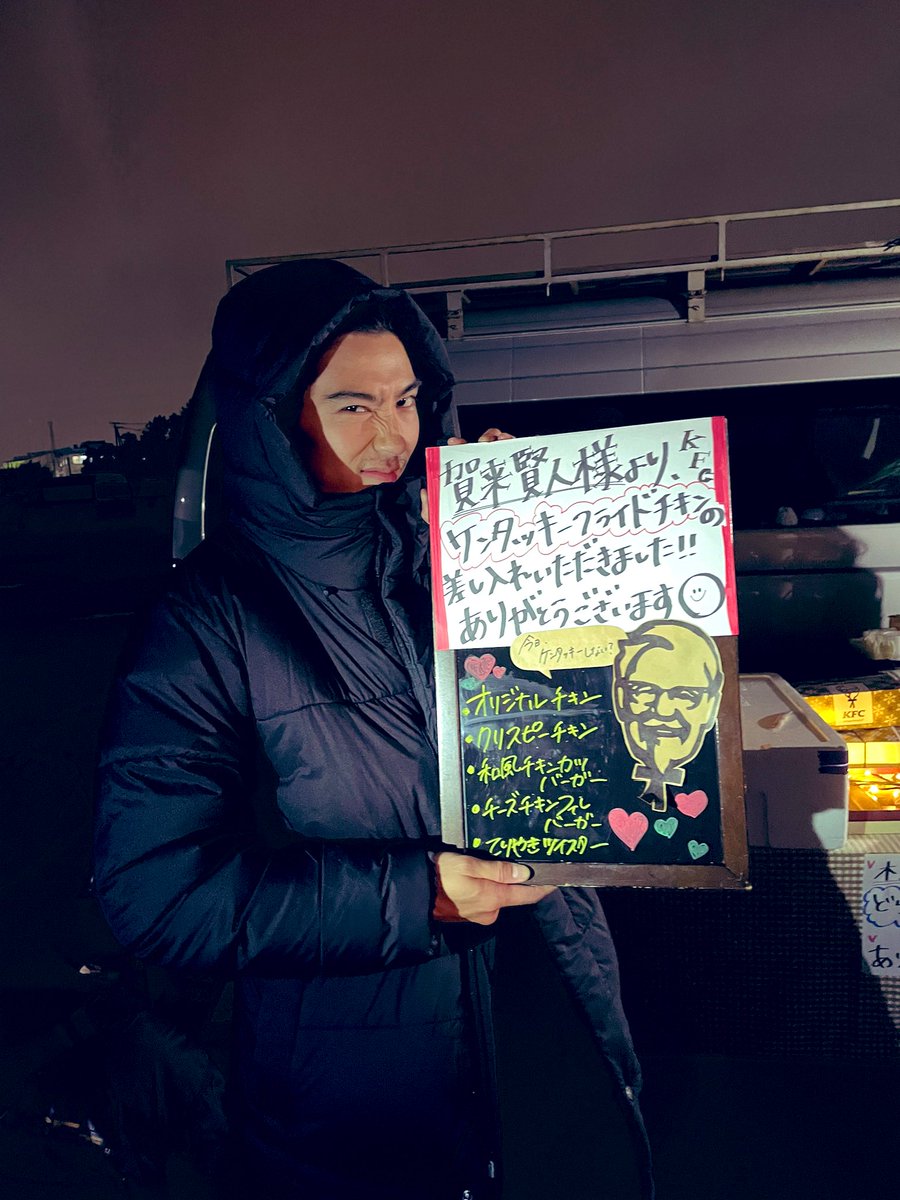 賀来賢人様より、KFC
ケンタッキーフライドチキンの
差し入れいただきました!!
ありがとうございます
今日、
ケンタッキーしない?
・オリジナルチキン
・クリスピーチキン
・和風チキンカツ
バーガー
・チーズチキンフィレ
バーガー
・てりやきツイスター
KFC
木
ど
あ